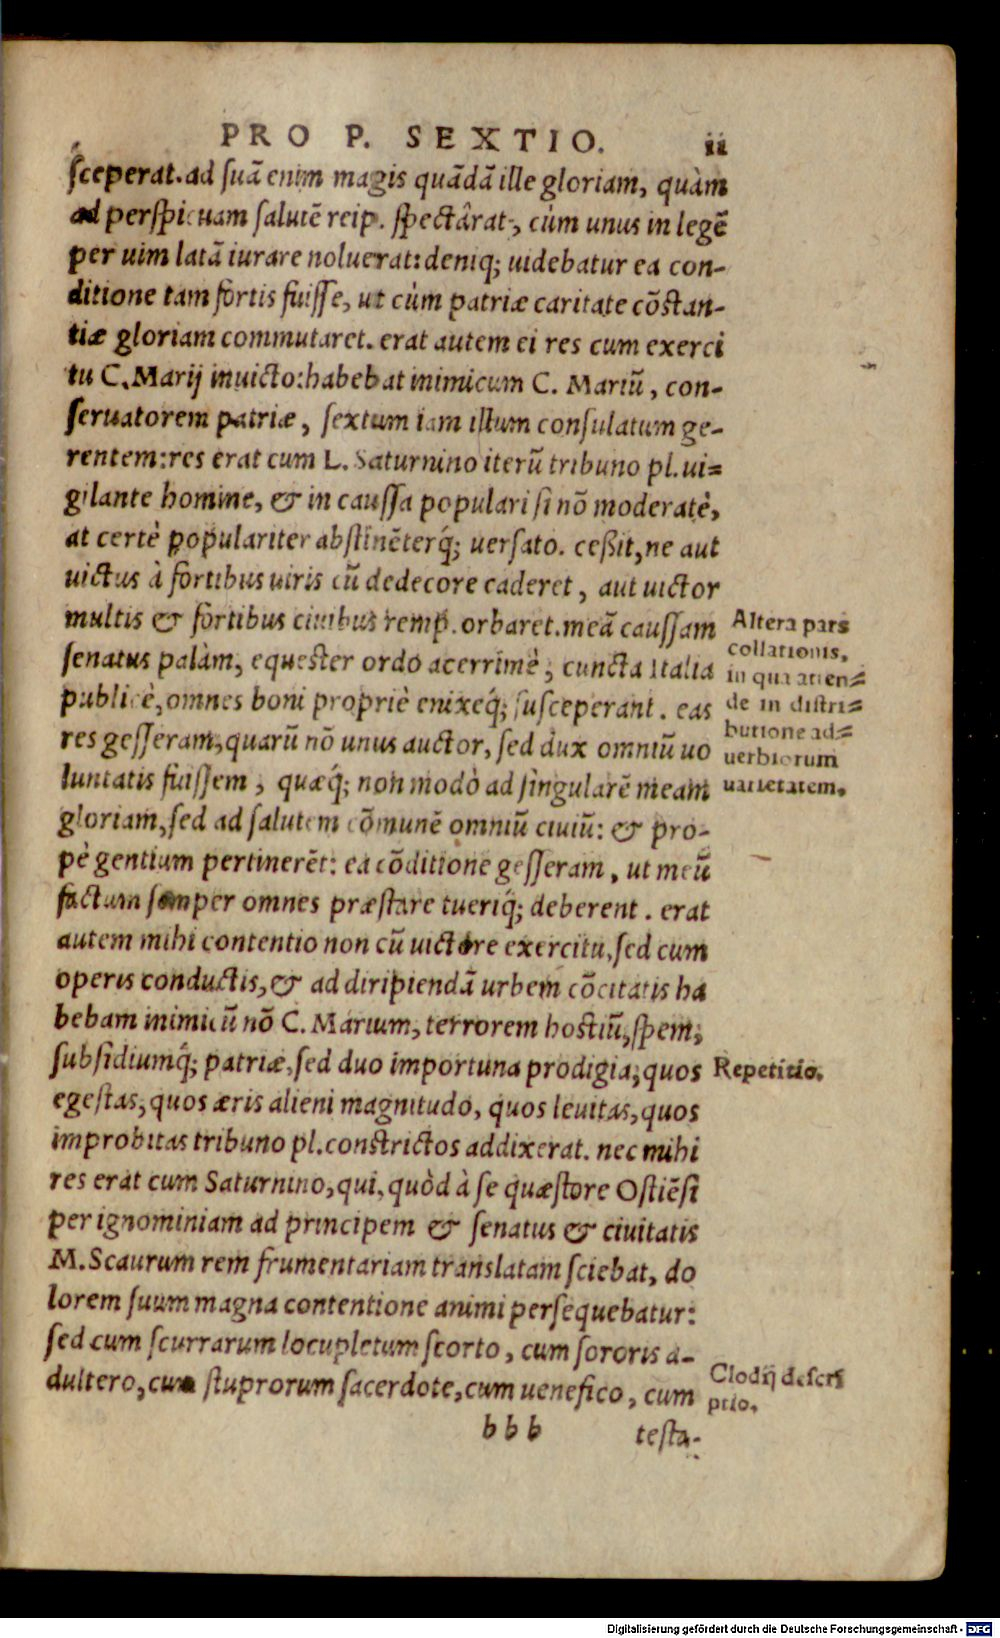 PRO P. SEXTIO. ii
ſceperat. ad ſuã enim magis quãdã ille gloriam, quàm
ad perſpicuam ſalutẽ reip. ſpectârat, cùm unus in legẽ
per uim latã iurare noluerat: deniq; uidebatur ea con-
ditione tam fortis fuiſſe, ut cùm patriæ caritate cõſtan-
tiæ gloriam commutaret. erat autem ei res cum exerci
tu C. Marij inuicto: habebat inimicum C. Mariũ, con-
ſeruatorem patriæ, ſextum iam iſtum conſulatum ge-
rentem: res erat cum L. Saturnino iterũ tribuno pl. ui=
gilante homine, & in cauſſa populari ſi nõ moderatè,
at certè populariter abſtinẽterq́; uerſato. ceßit, ne aut
uictus à fortibus uiris cũ dedecore caderet, aut uictor
multis & fortibus ciuibus remp. orbaret. meã cauſſam
ſenatus palàm, equeſter ordo acerrimè, cuncta Italia
publicè, omnes boni propriè enixeq́; ſuſceperant. eas
res geſſeram, quarũ nõ unus auctor, ſed dux omniũ uo
luntatis fuiſſem, quæq́; non modò ad ſingularẽ meam
gloriam, ſed ad ſalutem cõmunẽ omniũ ciuiũ: & pro-
pè gentium pertinerẽt: ea cõditione geſſeram, ut meũ
factum ſemper omnes præſtare tueriq́; deberent. erat
autem mihi contentio non cũ uictore exercitu, ſed cum
operis conductis, & ad diripiendã urbem cõcitatis ha
bebam inimicũ nõ C. Marium, terrorem hoſtiũ, ſpem,
ſubſidiumq́; patriæ, ſed duo importuna prodigia, quos
egeſtas, quos æris alieni magnitudo, quos leuitas, quos
improbitas tribuno pl. conſtrictos addixerat. nec mihi
res erat cum Saturnino, qui, quòd à ſe quæſtore Oſtiẽſi
per ignominiam ad principem & ſenatus & ciuitatis
M. Scaurum rem frumentariam translatam ſciebat, do
lorem ſuum magna contentione animi perſequebatur:
ſed cum ſcurrarum locupletum ſcorto, cum ſororis a-
dultero, cum ſtuprorum ſacerdote, cum uenefico, cum
b b b teſta-
Altera pars
collationis,
in qua atten=
de in diſtri=
butione ad=
uerbiorum
uarietatem.
Repetitio.
Clodij deſcri
ptio.
Digitalisierung gefördert durch die Deutsche Forschungsgemeinschaft - DFG